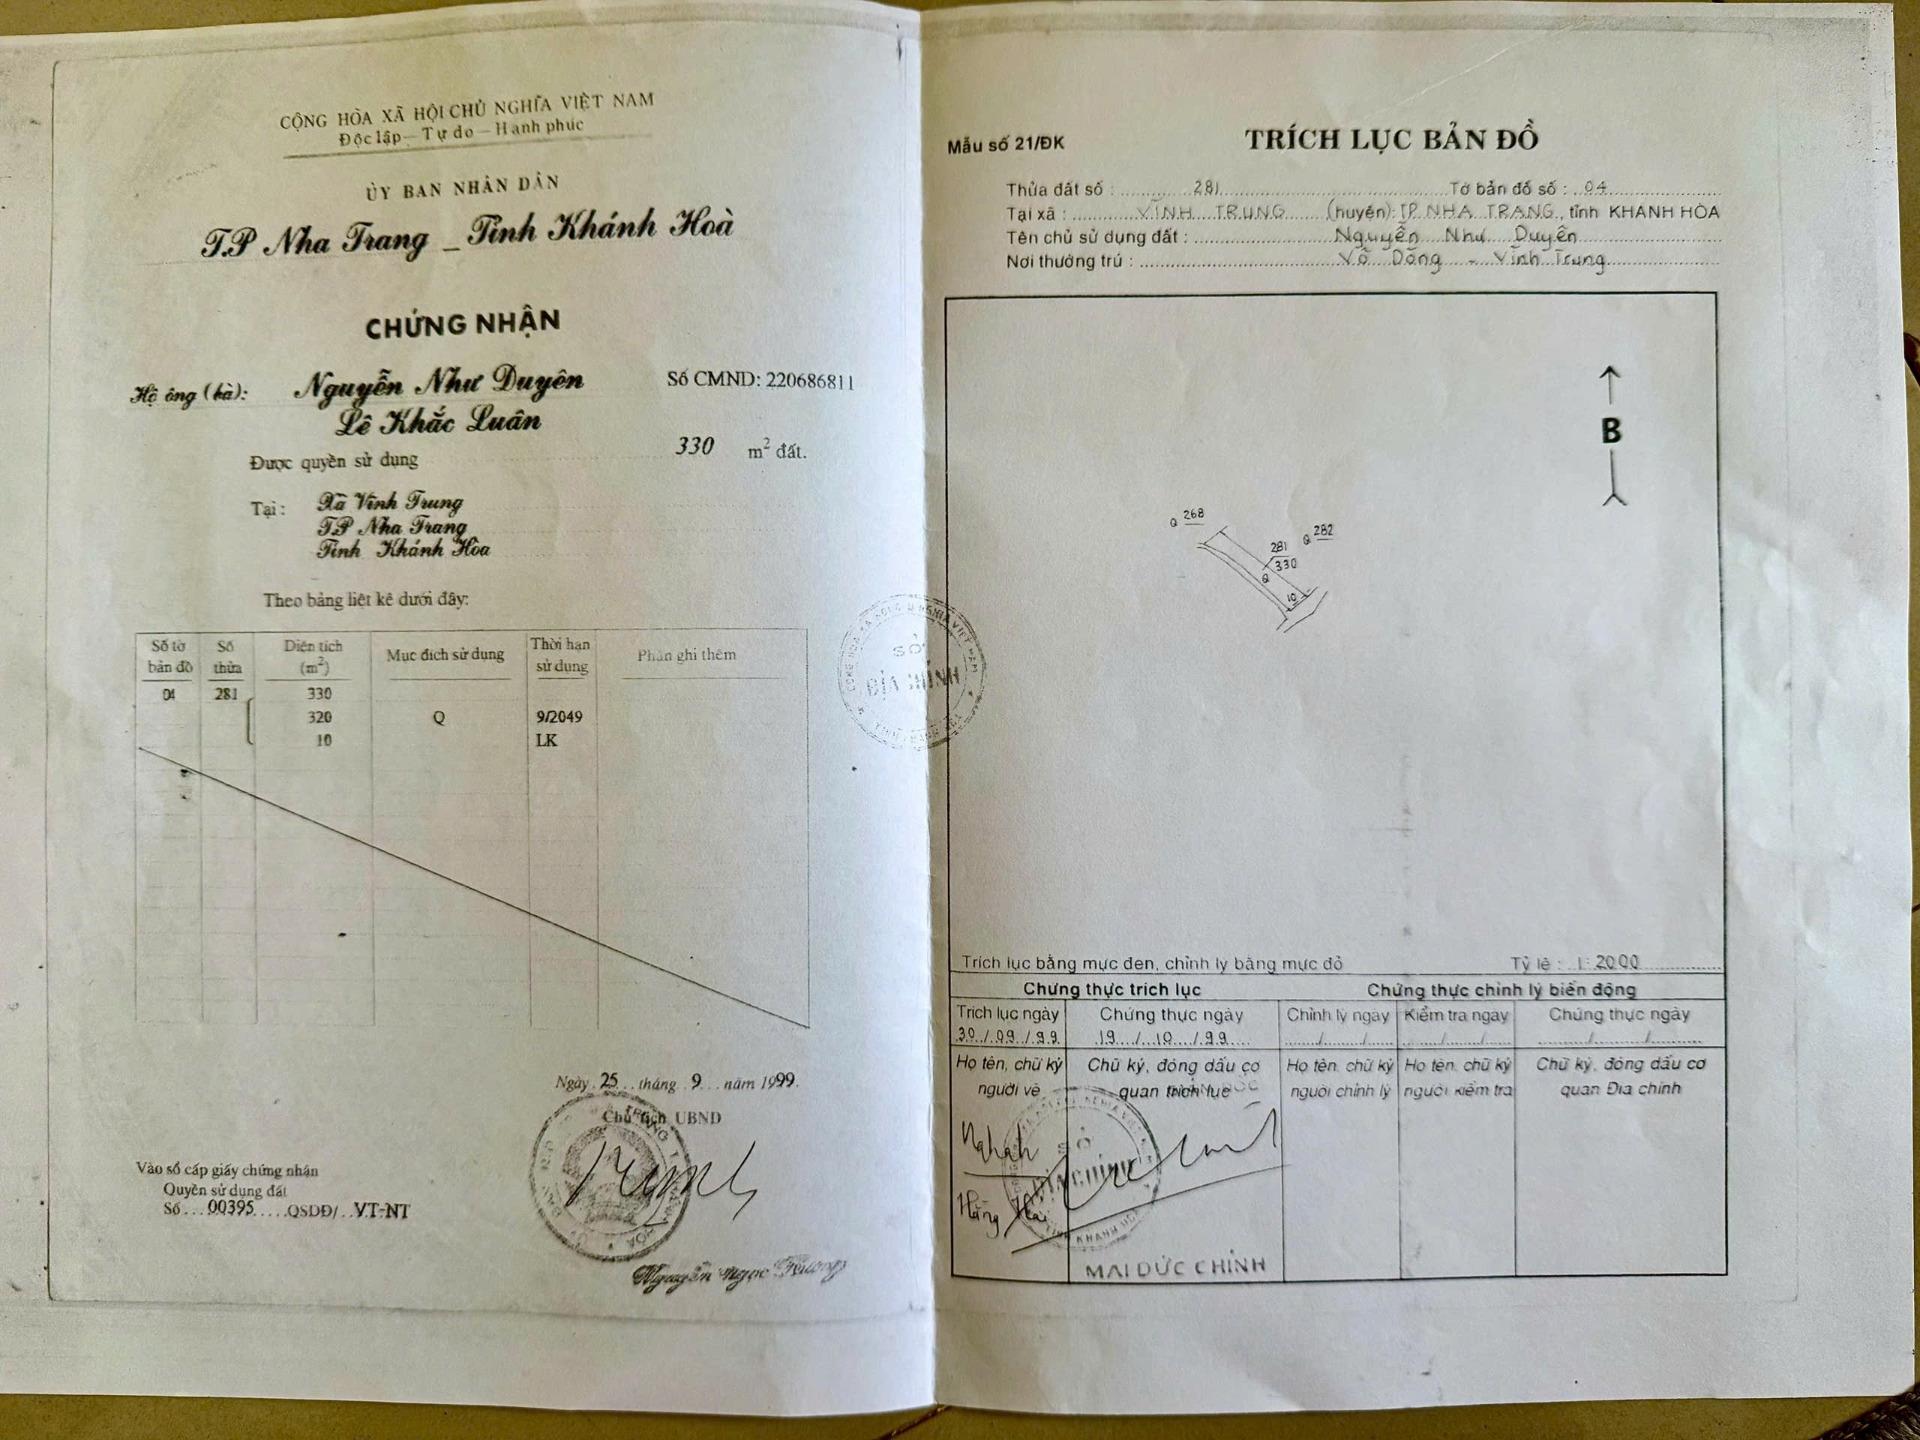 CỘNG HÒA XÃ HỘI CHỦ NGHĨA VIỆT NAM
Độc lập - Tự do - Hạnh phúc
ỦY BAN NHÂN DÂN
T.P Nha Trang _ Tỉnh Khánh Hoà
CHỨNG NHẬN
Hộ ông (bà): Nguyễn Như Duyên Số CMND: 220686811
Lê Khắc Luân
Được quyền sử dụng 330 m² đất.
Tại: Xã Vĩnh Trung
T.P Nha Trang
Tỉnh Khánh Hòa
Theo bảng liệt kê dưới đây:
Số tờ bản đồ Số thửa Diện tích (m²) Mục đích sử dụng Thời hạn sử dụng Phần ghi thêm
04 281 330
320 Q 9/2049
10 LK
Ngày 25 tháng 9 năm 1999
Chủ tịch UBND
Vào sổ cấp giấy chứng nhận
Quyền sử dụng đất
Số 00395 QSDĐ/ VT-NT
SỞ
ĐỊA CHÍNH
Mẫu số 21/ĐK
TRÍCH LỤC BẢN ĐỒ
Thửa đất số : 281 Tờ bản đồ số : 04
Tại xã : VĨNH TRUNG (huyện): TP NHA TRANG, tỉnh KHÁNH HÒA
Tên chủ sử dụng đất : Nguyễn Như Duyên
Nơi thường trú : Võ Dõng - Vĩnh Trung
B
Q 268
Q 282
281
330
Q
10
Trích lục bằng mực đen, chỉnh lý bằng mực đỏ Tỷ lệ : 1:2000
Chứng thực trích lục Chứng thực chỉnh lý biến động
Trích lục ngày Chứng thực ngày Chỉnh lý ngày Kiểm tra ngày Chứng thực ngày
30/09/99 19/10/99 / / / / / /
Họ tên, chữ ký người vẽ Chữ ký, đóng dấu cơ quan trích lục Họ tên, chữ ký người chỉnh lý Họ tên, chữ ký người kiểm tra Chữ ký, đóng dấu cơ quan Địa chính
MAI ĐỨC CHÍNH